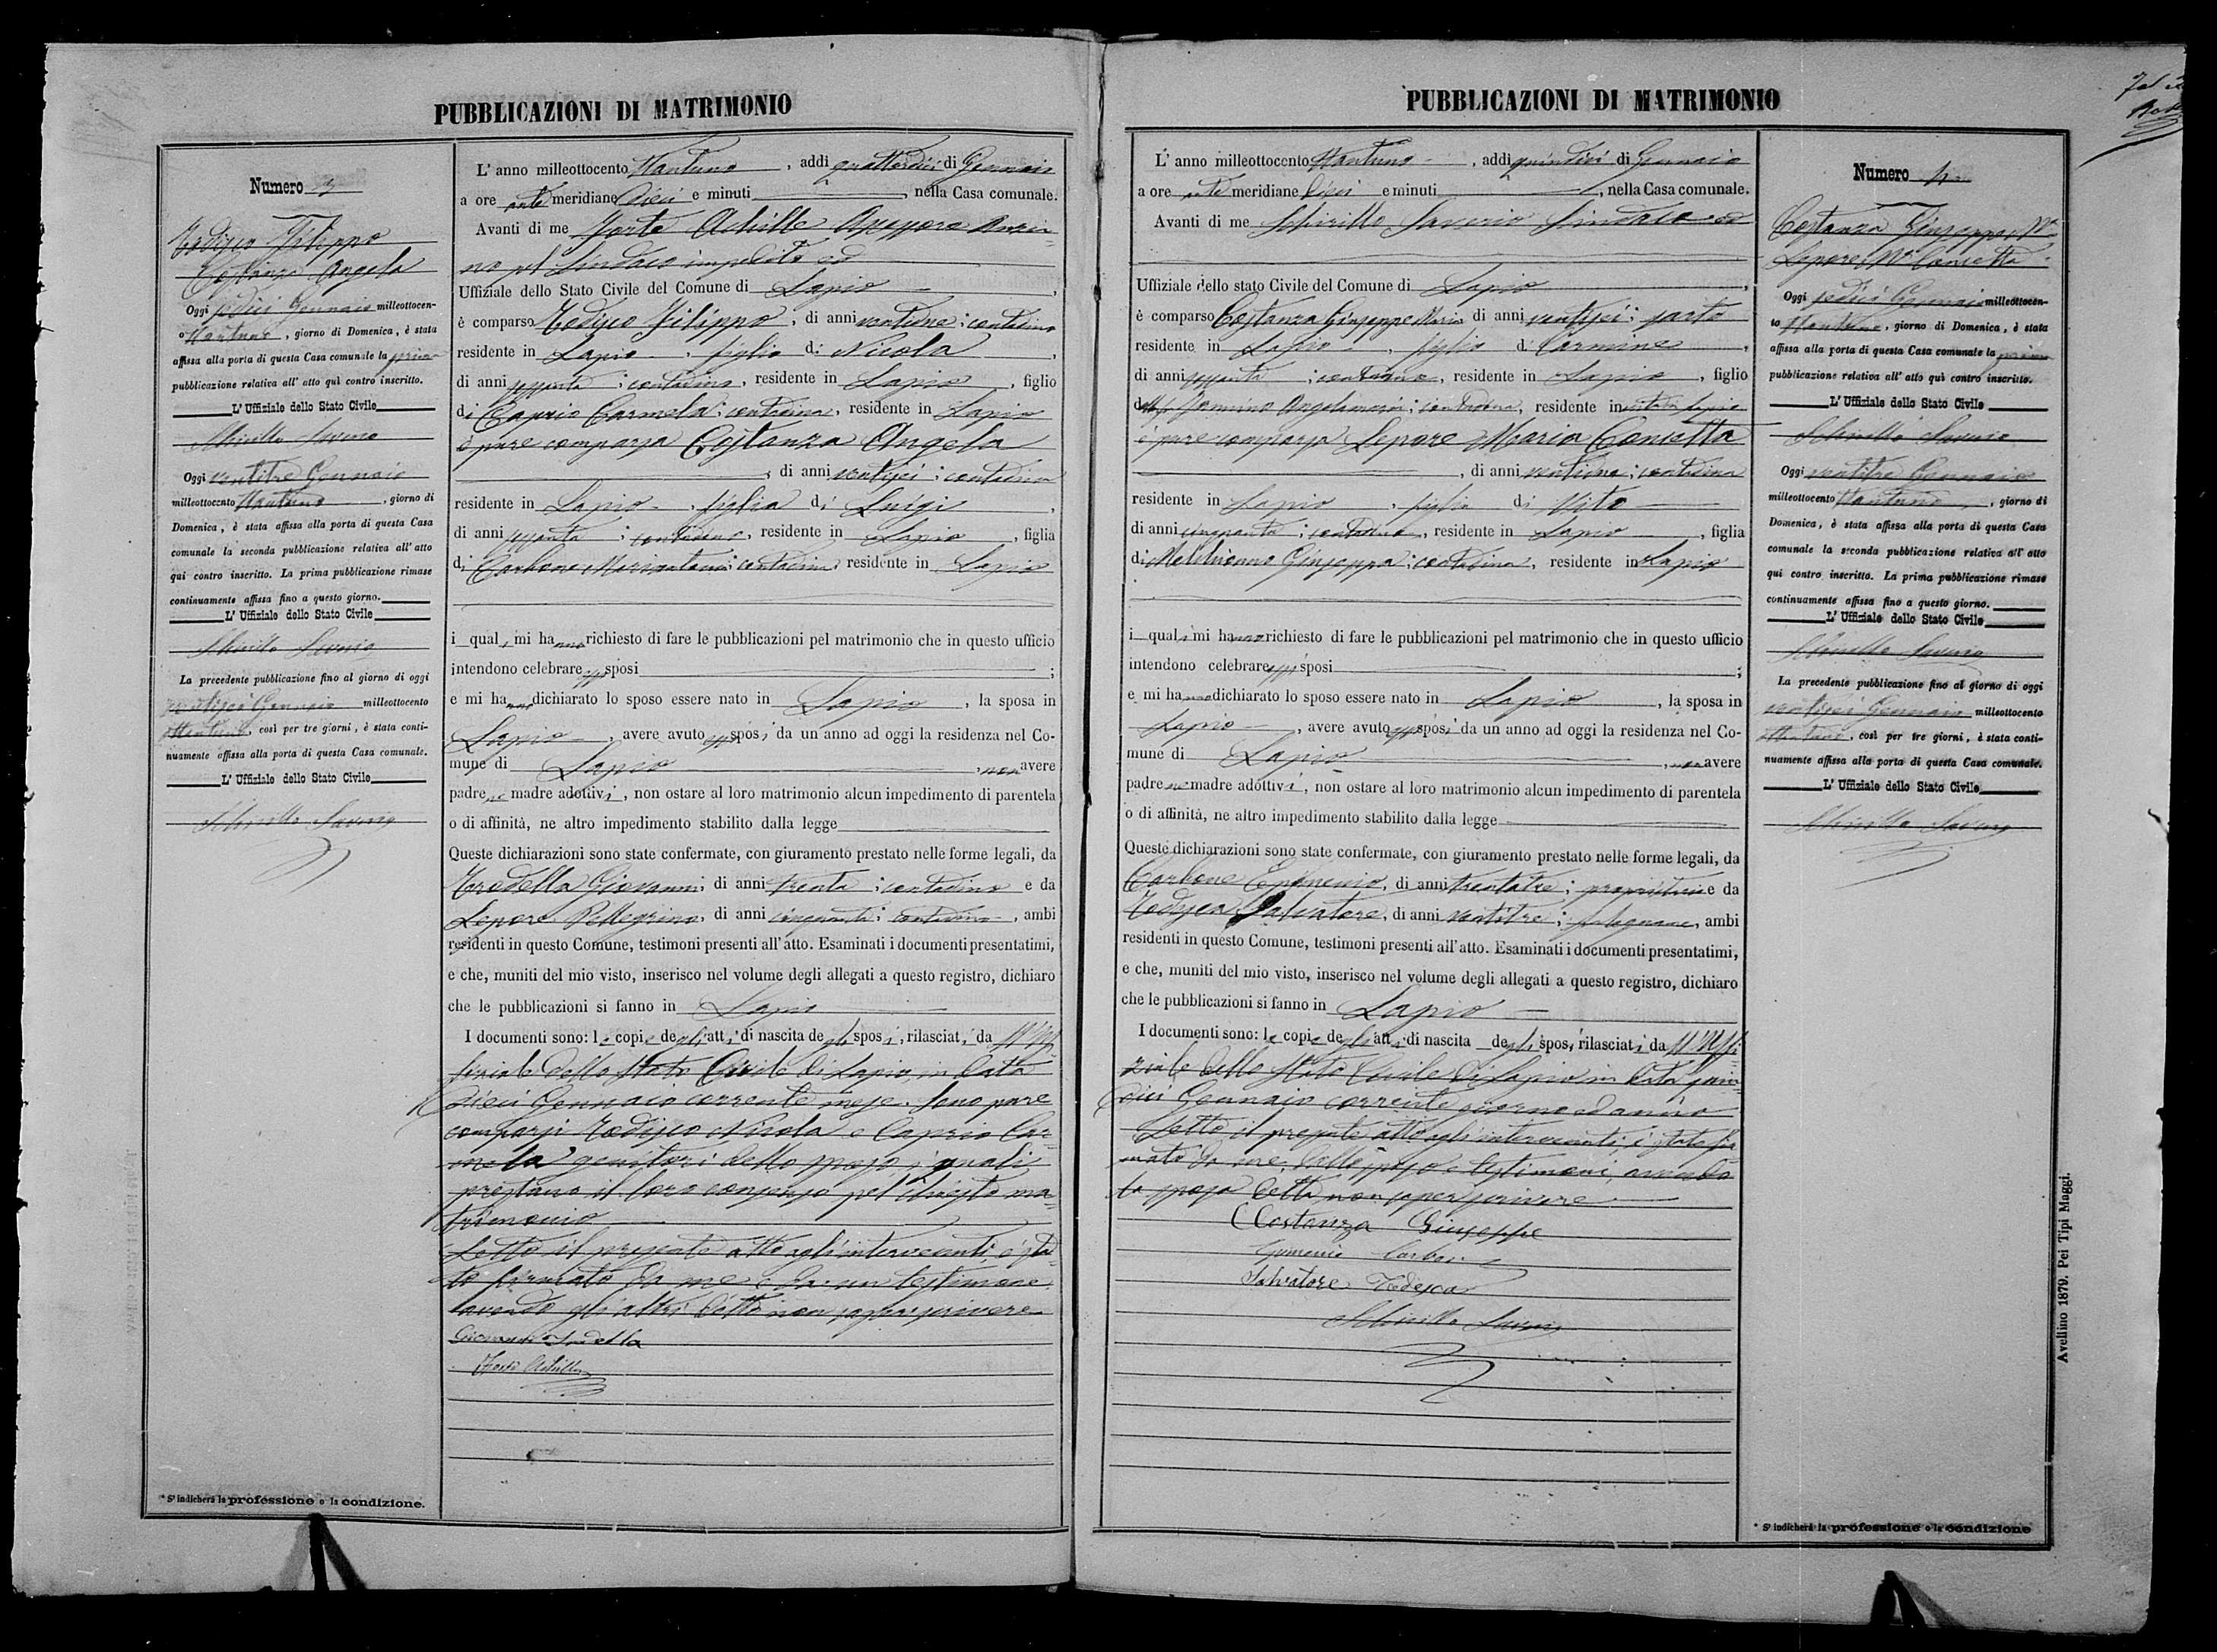 PUBBLICAZIONI DI MATRIMONIO
Numero 3
Todisco Filippo
Costanza Angela
Oggi sedici Gennaio milleottocen-
to ottantuno, giorno di Domenica, è stata
affissa alla porta di questa Casa comunale la prima
pubblicazione relativa all' atto quì contro inscritto.
L' Uffiziale dello Stato Civile
Schirillo Saverio
Oggi ventitre Gennaio
milleottocento ottantuno, giorno di
Domenica, è stata affissa alla porta di questa Casa
comunale la seconda pubblicazione relativa all' atto
qui contro inscritto. La prima pubblicazione rimase
continuamente affissa fino a questo giorno.
L' Uffiziale dello Stato Civile
Schirillo Saverio
La precedente pubblicazione fino al giorno di oggi
ventisei Gennaio milleottocento
ottantuno, così per tre giorni, è stata conti-
nuamente affissa alla porta di questa Casa comunale.
L' Uffiziale dello Stato Civile
Schirillo Saverio
* S' indicherà la professione o la condizione.
L' anno milleottocento ottantuno, addì quattordici di Gennaio
a ore ante meridiane dieci e minuti, nella Casa comunale.
Avanti di me Forte Achille Assessore Anzia-
no pel Sindaco impedito ed
Uffiziale dello Stato Civile del Comune di Lapio,
è comparso Todisco Filippo, di anni ventinove; contadino
residente in Lapio, figlio di Nicola,
di anni sessanta; contadino, residente in Lapio, figlio
di Caprio Carmela; contadina, residente in Lapio
è pure comparsa Costanza Angela
, di anni ventisei; contadina
residente in Lapio, figlia di Luigi,
di anni sessanta; contadino, residente in Lapio, figlia
di Carbone Mariantonia; contadina, residente in Lapio
i quali mi hanno richiesto di fare le pubblicazioni pel matrimonio che in questo ufficio
intendono celebrare essi sposi;
e mi hanno dichiarato lo sposo essere nato in Lapio, la sposa in
Lapio, avere avuto essi sposi da un anno ad oggi la residenza nel Co-
mune di Lapio, non avere
padre nè madre adottivi, non ostare al loro matrimonio alcun impedimento di parentela
o di affinità, ne altro impedimento stabilito dalla legge
Queste dichiarazioni sono state confermate, con giuramento prestato nelle forme legali, da
Trodella Giovanni, di anni trenta; contadino e da
Lepore Pellegrino, di anni cinquanta; contadino, ambi
residenti in questo Comune, testimoni presenti all' atto. Esaminati i documenti presentatimi,
e che, muniti del mio visto, inserisco nel volume degli allegati a questo registro, dichiaro
che le pubblicazioni si fanno in Lapio
I documenti sono: le copie degli atti di nascita degli sposi, rilasciati da ll' Uf-
fiziale dello Stato Civile di Lapio, in data
dieci Gennaio corrente mese. Sono pure
comparsi Todisco Nicola e Caprio Car-
mela genitori dello sposo, i quali
prestano il loro consenso pel chiesto ma-
trimonio
Letto il presente atto agli intervenuti, è sta-
to firmato da me e da un testimone
avendo gli altri detto non saper scrivere
Giovanni Trodella
Forte Achille
PUBBLICAZIONI DI MATRIMONIO
L' anno milleottocento ottantuno, addì quindici di Gennaio
a ore ante meridiane dieci e minuti, nella Casa comunale.
Avanti di me Schirillo Saverio Sindaco ed
Uffiziale dello stato Civile del Comune di Lapio,
è comparso Costanza Giuseppe Maria di anni ventisei; sarto
residente in Lapio, figlio di Carmine,
di anni sessanta; contadino, residente in Lapio, figlio
Angelamaria; contadina, residente in Lapio
è pure comparsa Lepore Maria Concetta
, di anni ventinove; contadina
residente in Lapio, figlia di Vito
di anni cinquanta; contadino, residente in Lapio, figlia
di Giuseppa; contadina, residente in Lapio
i quali mi hanno richiesto di fare le pubblicazioni pel matrimonio che in questo ufficio
intendono celebrare essi sposi;
e mi hanno dichiarato lo sposo essere nato in Lapio, la sposa in
Lapio, avere avuto essi sposi da un anno ad oggi la residenza nel Co-
mune di Lapio, non avere
padre nè madre adottivi, non ostare al loro matrimonio alcun impedimento di parentela
o di affinità, ne altro impedimento stabilito dalla legge
Queste dichiarazioni sono state confermate, con giuramento prestato nelle forme legali, da
Carbone, di anni trentatre; proprietario e da
Todesca Salvatore, di anni ventitre; falegname, ambi
residenti in questo Comune, testimoni presenti all' atto. Esaminati i documenti presentatimi,
e che, muniti del mio visto, inserisco nel volume degli allegati a questo registro, dichiaro
che le pubblicazioni si fanno in Lapio
I documenti sono: le copie degli atti di nascita degli sposi, rilasciati da ll' Uffi-
ziale dello Stato Civile di Lapio in data quin-
dici Gennaio corrente giorno ed anno
Letto il presente atto agli intervenuti, è stato fir-
mato da me, dallo sposo e testimoni, avendo
la sposa detto non saper scrivere
Costanza Giuseppe
Carbone
Salvatore Todesca
Schirillo Saverio
Numero 4
Costanza Giuseppe Ma
Lepore Ma Concetta
Oggi sedici Gennaio milleottocen-
to ottantuno, giorno di Domenica, è stata
affissa alla porta di questa Casa comunale la prima
pubblicazione relativa all' atto quì contro inscritto.
L' Uffiziale dello Stato Civile
Schirillo Saverio
Oggi ventitre Gennaio
milleottocento ottantuno, giorno di
Domenica, è stata affissa alla porta di questa Casa
comunale la seconda pubblicazione relativa all' atto
qui contro inscritto. La prima pubblicazione rimase
continuamente affissa fino a questo giorno.
L' Uffiziale dello Stato Civile
Schirillo Saverio
La precedente pubblicazione fino al giorno di oggi
ventisei Gennaio milleottocento
ottantuno, così per tre giorni, è stata conti-
nuamente affissa alla porta di questa Casa comunale.
L' Uffiziale dello Stato Civile
Schirillo Saverio
* S' indicherà la professione o la condizione
Avellino 1879. Pei Tipi Maggi.